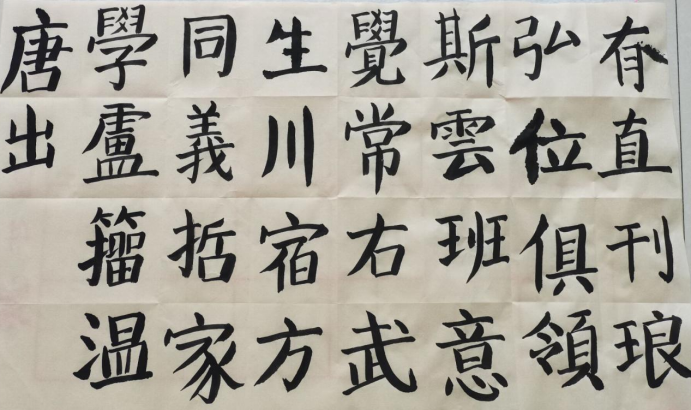 有直刊琅
弘位俱領
斯雲班意
覺常右武
生川宿方
同義哲家
學盧籀温
唐出